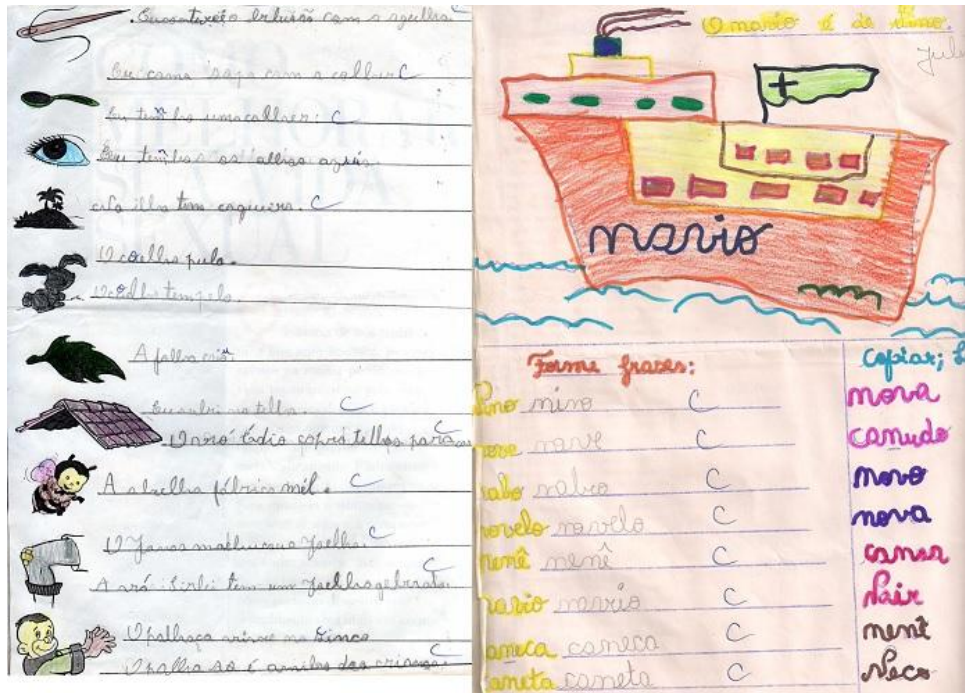 com a agulha
Eu coma sopa com a colher C
Eu tenho uma colher. C
Eu tenho os olhos azuis.
Na ilha tem coqueiro. C
O coelho pula.
O coelho tem pelo.
A folha caiu.
na telha. C
O vovô telhas para
A abelha fabrica mél. C
O machucou o joelho. C
A vovó Sirlei tem um joelho C
O palhaço no Circo
O palhaso é das crianças. C
O navio é do Nino.
navio
Forme frases:
Nino nino C
nove nave C
nabo nabo C
novelo novelo C
nenê nenê C
navio navio C
caneca caneca C
caneta caneta C
Copiar;
nova
canudo
novo
nova
cansar
Nair
nenê
Neco